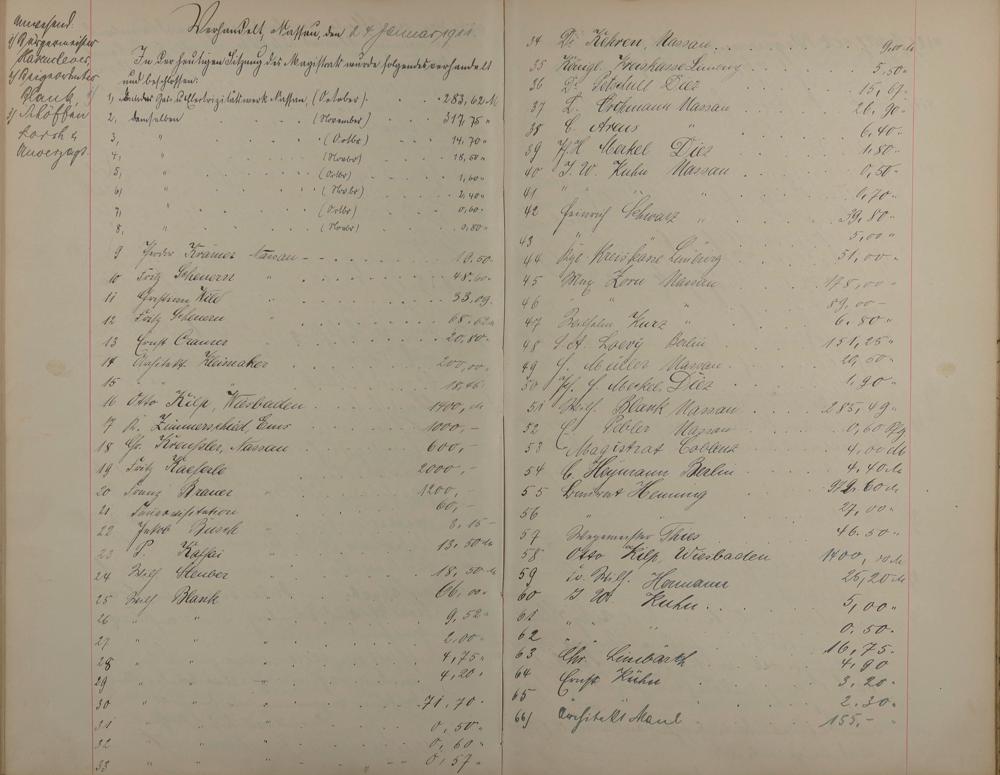 Anwesend:
1) Bürgermeister
Hasenclever,
2) Beigeordneter
Blank,
3) Schöffen
Lorch &
Unverzagt.
Verhandelt, Nassau, den 24 Januar, 1911.
In der heutigen Sitzung des Magistrats wurde folgendes verhandelt
und beschlossen:
1, Elektrizitätswerk Nassau, (October) 283,62 M
2, demselben (November) 317,75 "
3, " (Octbr) 14,70 "
4, " (Novbr) 18,50 "
5, " (Octbr) 1,60 "
6) " (Novbr) 2,40 "
7, " (Octbr) 0,60 "
8, " (Novbr) 0,80 "
9 Theodor Krämer Nassau 19.50
10 Fritz Scheuern " 48.60
11 Christian " 33.09.
12 Fritz Scheuern " 68.62
13 Ernst Cramer " 20,80
14 Architekt Heimaker 200,00
15 " " 18.46
16 Otto Kilp, Wiesbaden 1400, M
17 R. Zimmerschied, Ems 1000,-
18 Chr. Kreussler, Nassau 600,-
19 Fritz Kaeferle 2000,-
20 Franz Brauer 1200,-
21 60,-
22 Jakob Busch 8.15 -
23 P. 13.50 M
24 Wilh Steuber 18,50 M
25 Wilh Blank 66,00
26 " " 9,52
27 " " 2.00
28 " " 4,75
29 " " 4,20
30 " " 71,70
31 " " 0,50
32 " " 0,60
33 " " 0,57
34 Dr Kehren, Nassau
35 Königl. Kreiskasse Limburg 5,50
36 Diez 15,67.
37 Nassau 26,90
38 C. " 6,40
39 Ph. H Merkel Diez 1,80
40 J. W. Kuhn Nassau 0,50
41 " " 0,70
42 Heinrich Schwarz " 39,80
43 " " 5,00 "
44 Kgl Kreiskasse Limburg 51,00
45 Max Zorn Nassau 178,00
46 " " 89,00
47 Wilhelm Kurz " 6.80
48 S. A. Loevy Berlin 151,25
49 Müller Nassau 20,50
50 Ph. H. Merkel Diez 1,90
51 Wilh. Blank Nassau 285,49
52 Nassau 0,60 Pfg
53 Magistrat Coblenz 4,00 M
54 C. Heymann Berlin 4,40 M
55 Laurent Henning 60 M
56 " 27,00
57 Wegemeister Thies 46.50
58 Otto Kilp, Wiesbaden 1400, 00 M
59 Wilh. Hermann 25,20 M
60 J W Kuhn 5,00
61 " " 0.50
62 16,75
63 Chr. Limbarth 4,90
64 Ernst Kühn 3,20
65 2,30
66) Architekt Maul 155,-